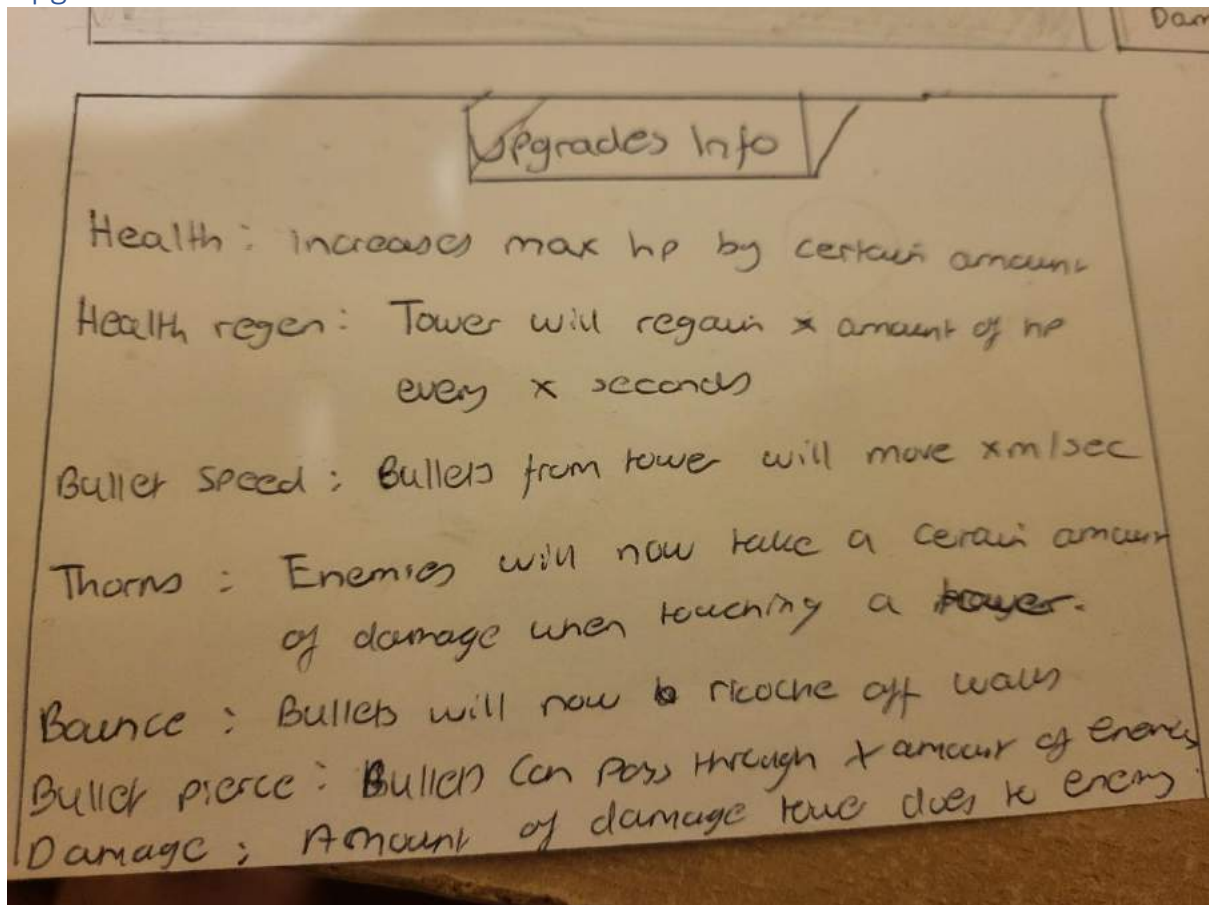 Dam
Upgrades Info
Health : increases max hp by certain amount
Health regen : Tower will regain x amount of hp
every x seconds
Bullet speed : Bullets from tower will move xm/sec
Thorns : Enemies will now take a cerain amount
of damage when touching a tower.
Bounce : Bullets will now ricoche off walls
Bullet pierce : Bullets can pass through x amount of enemies
Damage : Amount of damage towe does to enemy.